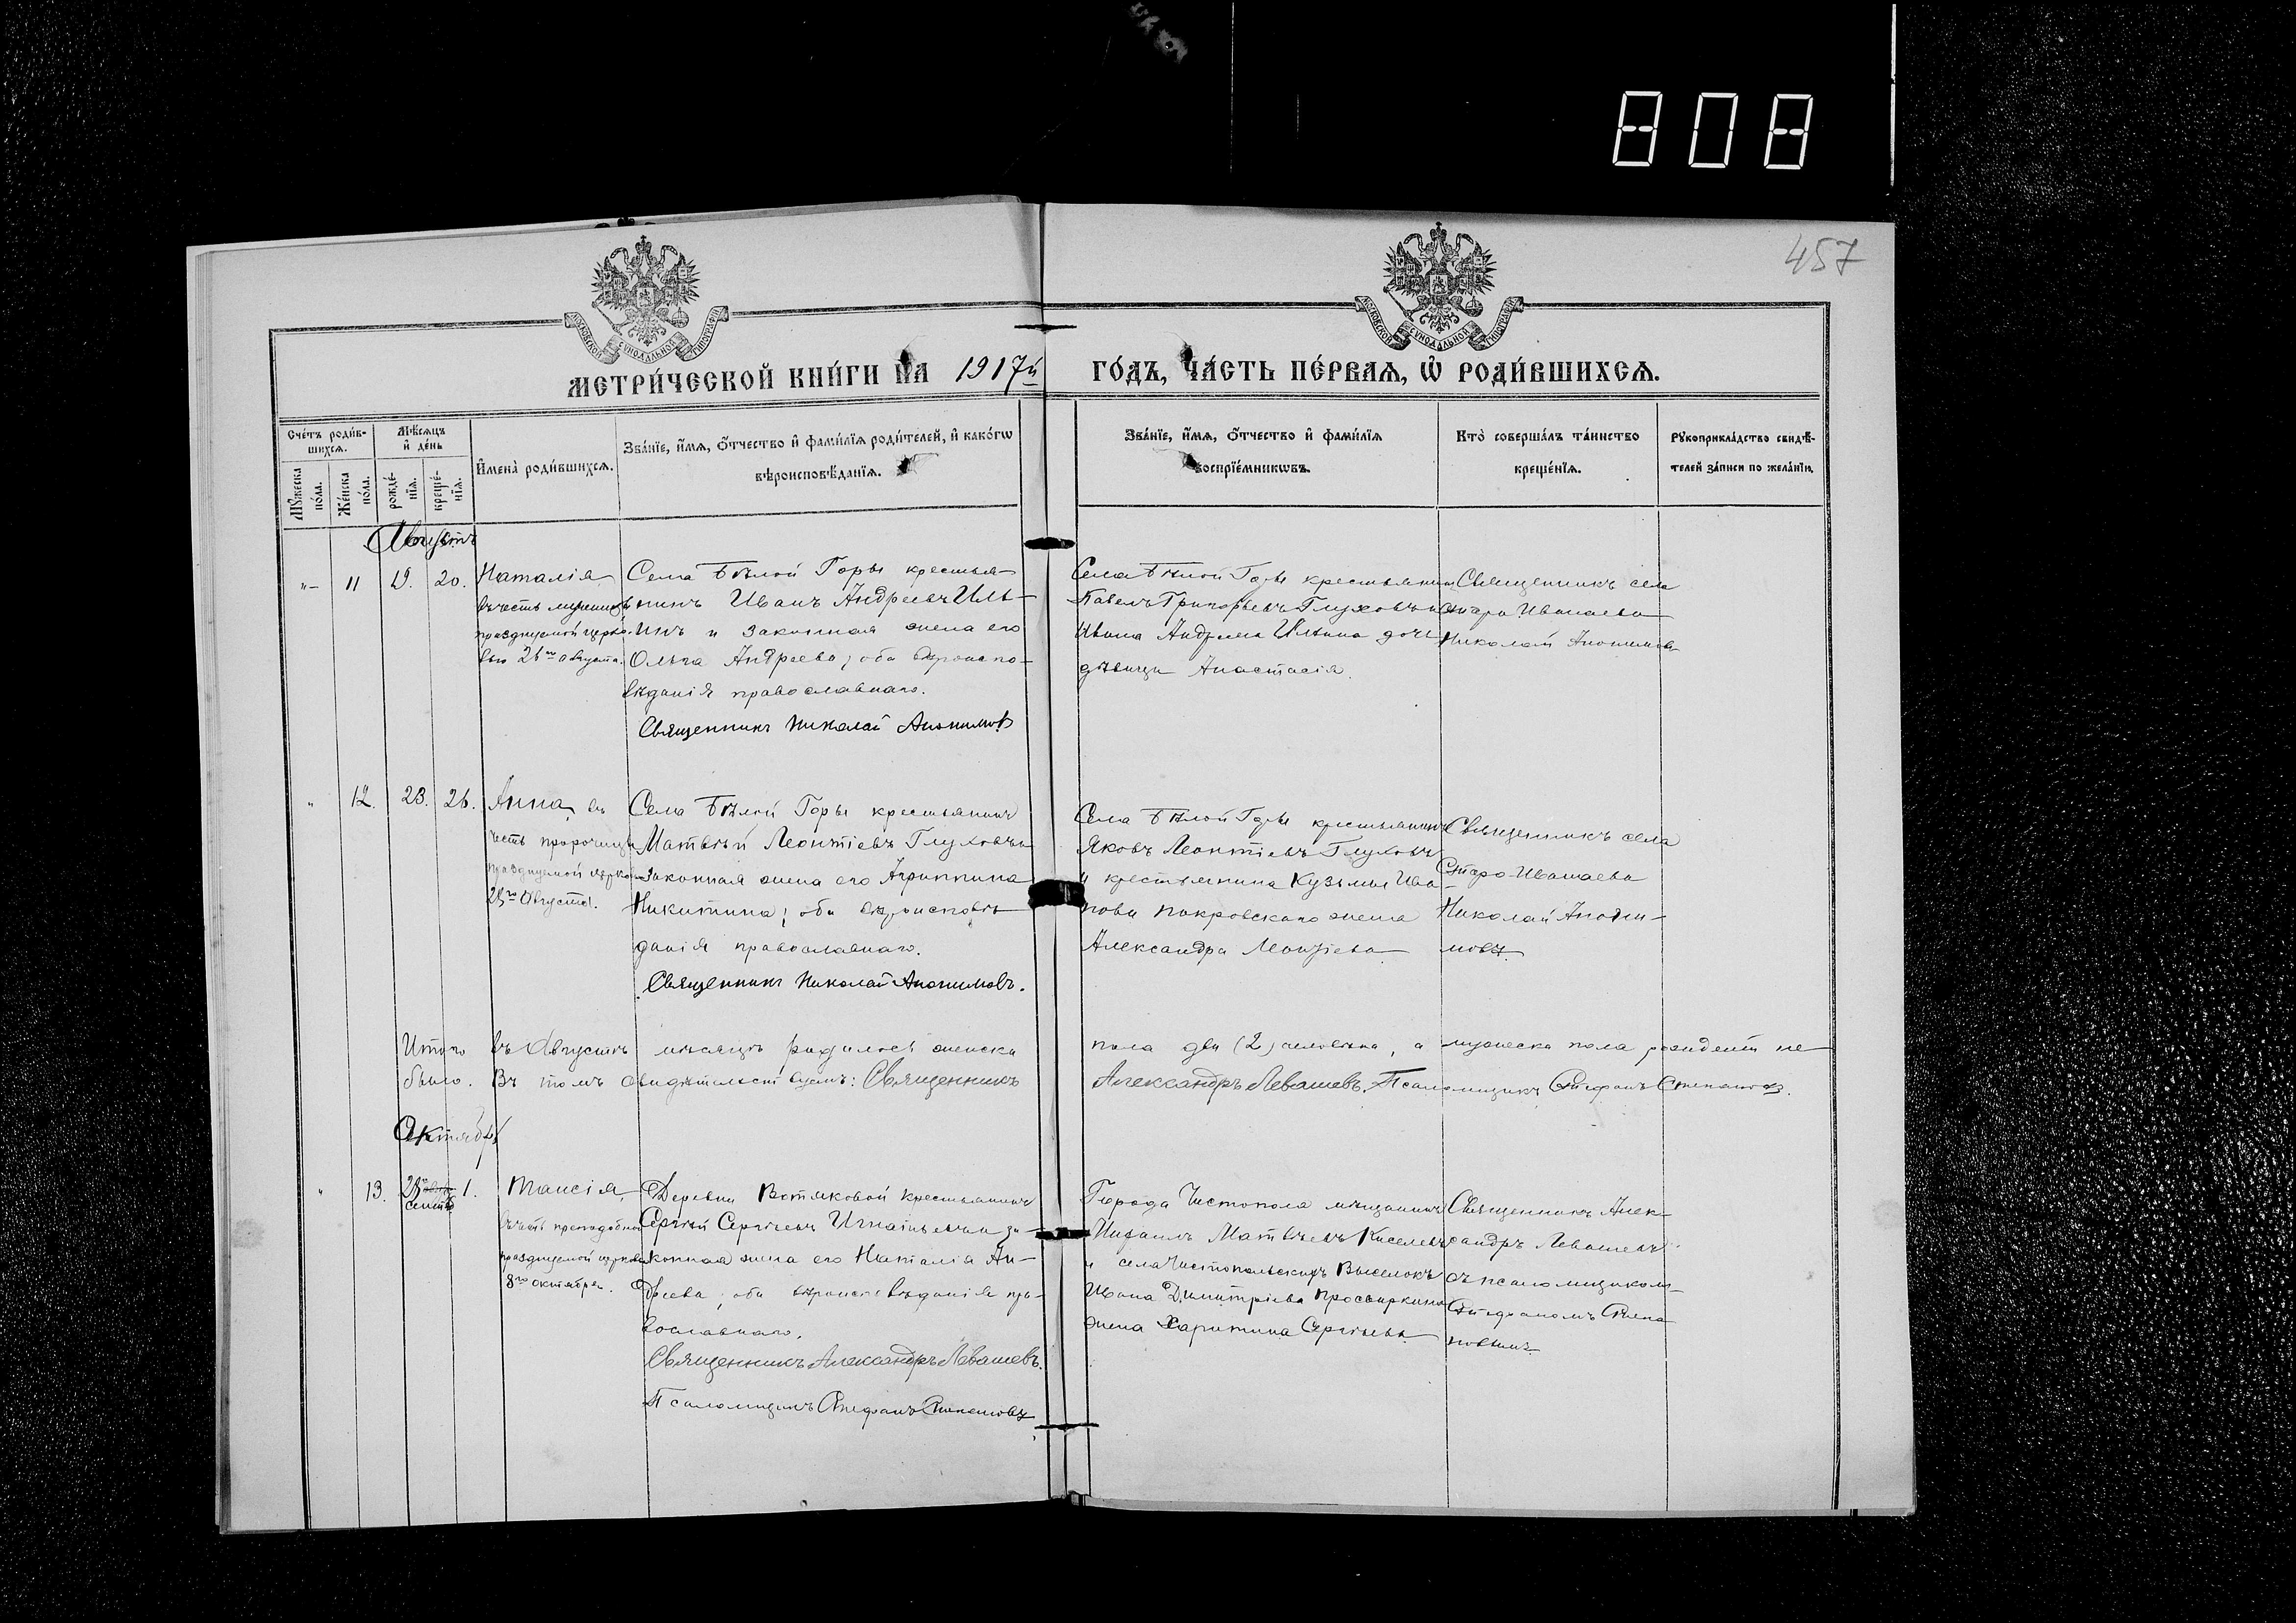 808
457
МОСКОВСКОЙ СѴНОДАЛЬНОЙ ТИПОГРАФІИ
МОСКОВСКОЙ СѴНОДАЛЬНОЙ ТИПОГРАФІИ
МЕТРИ́ЧЕСКОЙ КНИ́ГИ НА 1917й ГО́ДЪ, ЧА́СТЬ ПЕ́РВАѦ, Ѽ РОДИ́ВШИХСѦ.
Сче́тъ роди́в-
шихсѧ.
Мꙋ́жеска
по́ла.
Же́нска
по́ла.
Мѣ́сѧцъ
и҆ де́нь
рожде́-
нїѧ.
креще́-
нїѧ.
И҆мена̀ роди́вшихсѧ.
Зва́нїе, и҆́мѧ, ѻ҆́тчество и҆ фами́лїѧ роди́телей, и҆ како́гѡ
вѣроисповѣ́данїѧ.
Зва́нїе, и҆́мѧ, ѻ҆́тчество и҆ фами́лїѧ
воспрїе́мникѡвъ.
Кто̀ соверша́лъ та́инство
креще́нїѧ.
Рꙋкоприкла́дство свидѣ́-
телей за́писи по жела́нїю.
Августъ
"— 11 19. 20.
Наталія
въ честь мученицы
празднуемой церко-
вью 26го августа.
Села Бѣлой Горы крестья-
нинъ Иванъ Андреевъ Иль-
инъ и законная жена его
Ольга Андреева; оба вѣроиспо-
вѣданія православнаго.
Священникъ Николай Анонимов
Села Бѣлой Горы крестьянинъ
Павелъ Григорьевъ Глуховъ и
Ивана Андреева Ильина дочь
дѣвица Анастасія.
Священникъ села
Старо-Ивашева
Николай Анонимов
" 12. 23. 26.
Анна, въ
честь пророчицы
празднуемой церковью
28го Августа.
Села Бѣлой Горы крестьянинъ
Матвѣй Леонтіевъ Глуховъ и
законная жена его Агриппина
Никитина; оба вѣроисповѣ-
данія православнаго.
Священникъ Николай Анонимовъ.
Села Бѣлой Горы крестьянинъ
Яковъ Леонтіевъ Глуховъ
и крестьянина Кузьмы Ива-
нова Покровскаго жена
Александра Леонтіева
Священникъ села
Старо-Ивашева
Николай Анони-
мовъ.
Итого въ Августѣ мѣсяцѣ родилось женска пола два (2) человѣка, а мужеска пола рожденій не
было. Въ томъ свидѣтельствуемъ: Священникъ Александръ Левашевъ. Псаломщикъ Стефанъ Степановъ.
Октябрь
" 13. 28го сентяб 1.
Таисія,
въ честь преподобной
празднуемой церковью
8го октября.
Деревни Вотяковой крестьянинъ
Сергѣй Сергѣевъ Игнатьевъ и за-
конная жена его Наталія Ан-
дреева; оба вѣроисповѣданія пра-
вославнаго.
Священникъ Александръ Левашевъ.
Псаломщикъ Стефанъ Степановъ
Города Чистополя мѣщанинъ
Михаилъ Матвѣевъ Киселевъ
и села Чистопольскихъ Выселокъ
Ивана Димитріева Просвиркина
жена Харитина Сергѣева
Священникъ Алек-
сандръ Левашевъ
съ псаломщикомъ
Стефаномъ Степа-
новымъ.